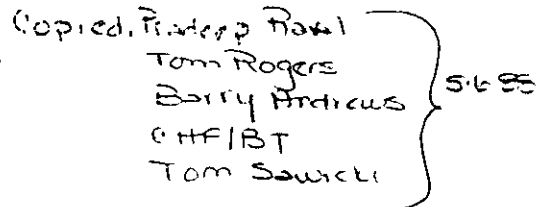 Copied: Pradeep Raval
Tom Rogers
Barry Andrews
CHF/BT
Tom Sawicki